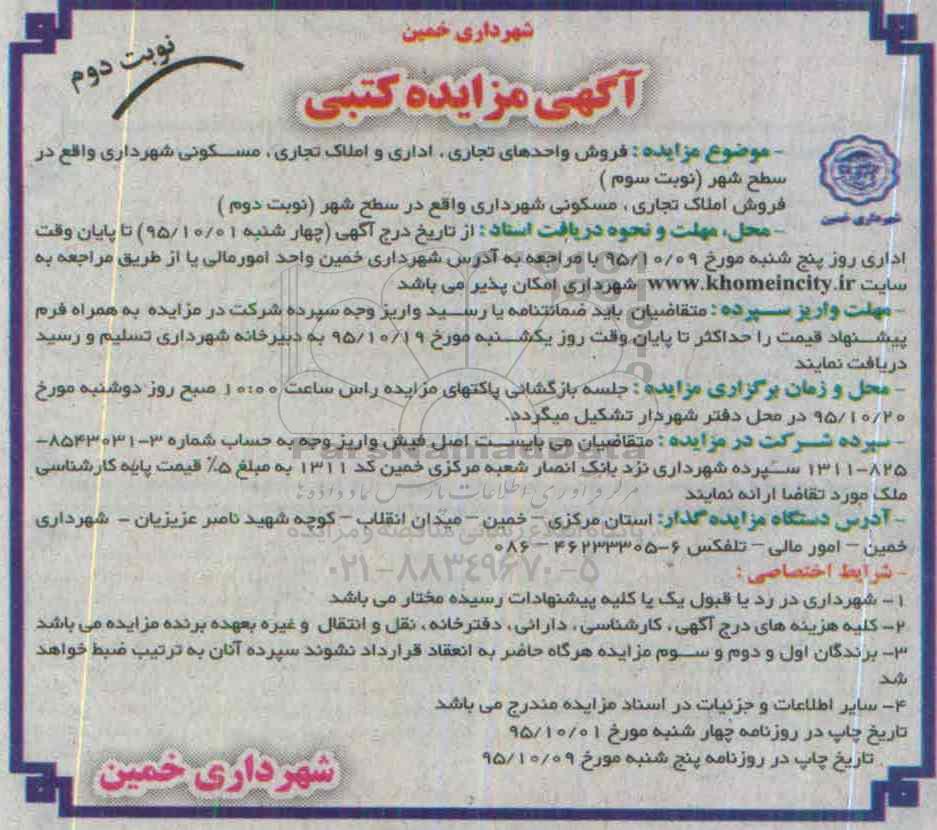 شهرداری خمین
نوبت دوم
آگهی مزایده کتبی
- موضوع مزایده : فروش واحدهای تجاری ، اداری و املاک تجاری ، مسکونی شهرداری واقع در
سطح شهر (نوبت سوم )
فروش املاک تجاری ، مسکونی شهرداری واقع در سطح شهر (نوبت دوم )
شهرداری خمین
- محل، مهلت و نحوه دریافت اسناد : از تاریخ درج آگهی (چهار شنبه ۹۵/۱۰/۰۱) تا پایان وقت
اداری روز پنج شنبه مورخ ۹۵/۱۰/۰۹ با مراجعه به آدرس شهرداری خمین واحد امورمالی یا از طریق مراجعه به
سایت www.khomeincity.ir شهرداری امکان پذیر می باشد
- مهلت واریز سپرده : متقاضیان باید ضمانتنامه یا رسید واریز وجه سپرده شرکت در مزایده به همراه فرم
پیشنهاد قیمت را حداکثر تا پایان وقت روز یکشنبه مورخ ۹۵/۱۰/۱۹ به دبیرخانه شهرداری تسلیم و رسید
دریافت نمایند
- محل و زمان برگزاری مزایده : جلسه بازگشائی پاکتهای مزایده راس ساعت ۱۰:۰۰ صبح روز دوشنبه مورخ
۹۵/۱۰/۲۰ در محل دفتر شهردار تشکیل میگردد.
- سپرده شرکت در مزایده : متقاضیان می بایست اصل فیش واریز وجه به حساب شماره ۳-۸۵۴۳۰۳۱-
۸۲۵-۱۳۱۱ سپرده شهرداری نزد بانک انصار شعبه مرکزی خمین کد ۱۳۱۱ به مبلغ ۵٪ قیمت پایه کارشناسی
ملک مورد تقاضا ارائه نمایند
- آدرس دستگاه مزایده گذار: استان مرکزی – خمین – میدان انقلاب – کوچه شهید ناصر عزیزیان – شهرداری
خمین – امور مالی – تلفکس ۶-۴۶۲۳۳۳۰۵ – ۰۸۶
- شرایط اختصاصی :
۱- شهرداری در رد یا قبول یک یا کلیه پیشنهادات رسیده مختار می باشد
۲- کلیه هزینه های درج آگهی ، کارشناسی ، دارائی ، دفترخانه ، نقل و انتقال و غیره بعهده برنده مزایده می باشد
۳- برندگان اول و دوم و سوم مزایده هرگاه حاضر به انعقاد قرارداد نشوند سپرده آنان به ترتیب ضبط خواهد
شد
۴- سایر اطلاعات و جزئیات در اسناد مزایده مندرج می باشد
تاریخ چاپ در روزنامه چهار شنبه مورخ ۹۵/۱۰/۰۱
تاریخ چاپ در روزنامه پنج شنبه مورخ ۹۵/۱۰/۰۹
شهرداری خمین
ParsNamadData
پایگاه اطلاع رسانی مناقصه و مزایده
۰۲۱-۸۸۳۴۹۶۷۰-۵